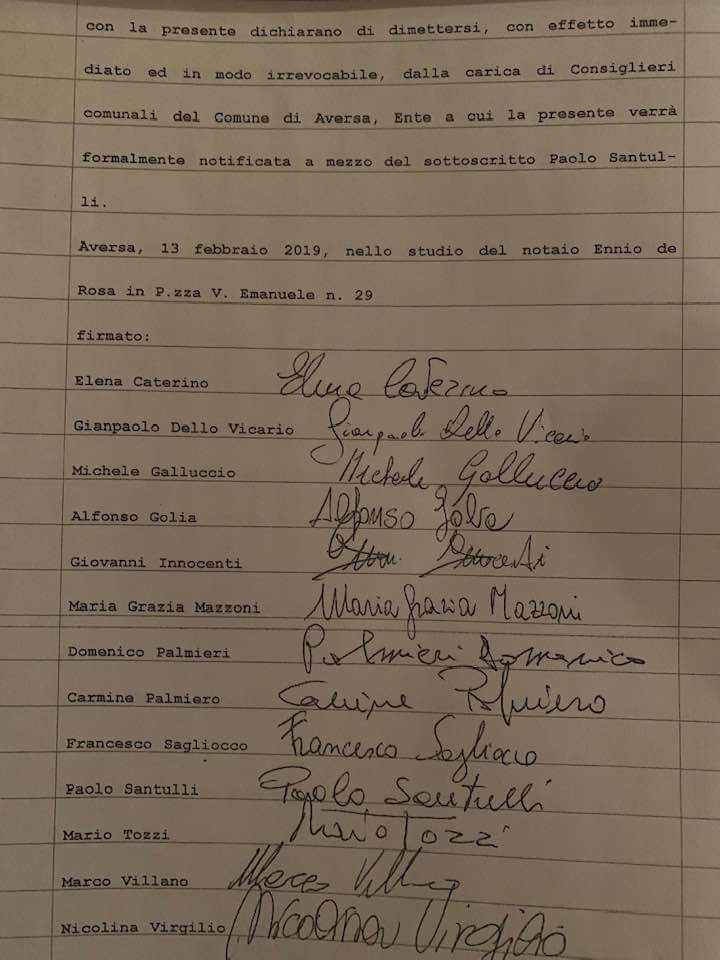 con la presente dichiarano di dimettersi, con effetto imme-
diato ed in modo irrevocabile, dalla carica di Consiglieri
comunali del Comune di Aversa, Ente a cui la presente verrà
formalmente notificata a mezzo del sottoscritto Paolo Santul-
li.
Aversa, 13 febbraio 2019, nello studio del notaio Ennio de
Rosa in P.zza V. Emanuele n. 29
firmato:
Elena Caterino Elena Caterino
Gianpaolo Dello Vicario Gianpaolo Dello Vicario
Michele Galluccio Michele Galluccio
Alfonso Golia Alfonso Golia
Giovanni Innocenti
Maria Grazia Mazzoni Maria Grazia Mazzoni
Domenico Palmieri Palmieri Domenico
Carmine Palmiero Carmine Palmiero
Francesco Sagliocco Francesco Sagliocco
Paolo Santulli Paolo Santulli
Mario Tozzi Mario Tozzi
Marco Villano Marco Villano
Nicolina Virgilio Nicolina Virgilio